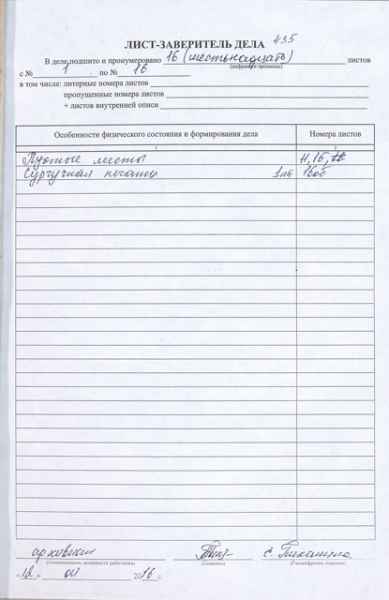 ЛИСТ-ЗАВЕРИТЕЛЬ ДЕЛА 435
В деле подшито и пронумеровано 16 (шестнадцать) листов
(цифрами и прописью)
с № 1 по № 16
в том числе: литерные номера листов
пропущенные номера листов
+ листов внутренней описи
Особенности физического состояния и формирования дела Номера листов
Пустые листы
Сургучная печать 1 шт 16об
архивист
(наименование должности работника) (подпись) (расшифровка подписи)
16